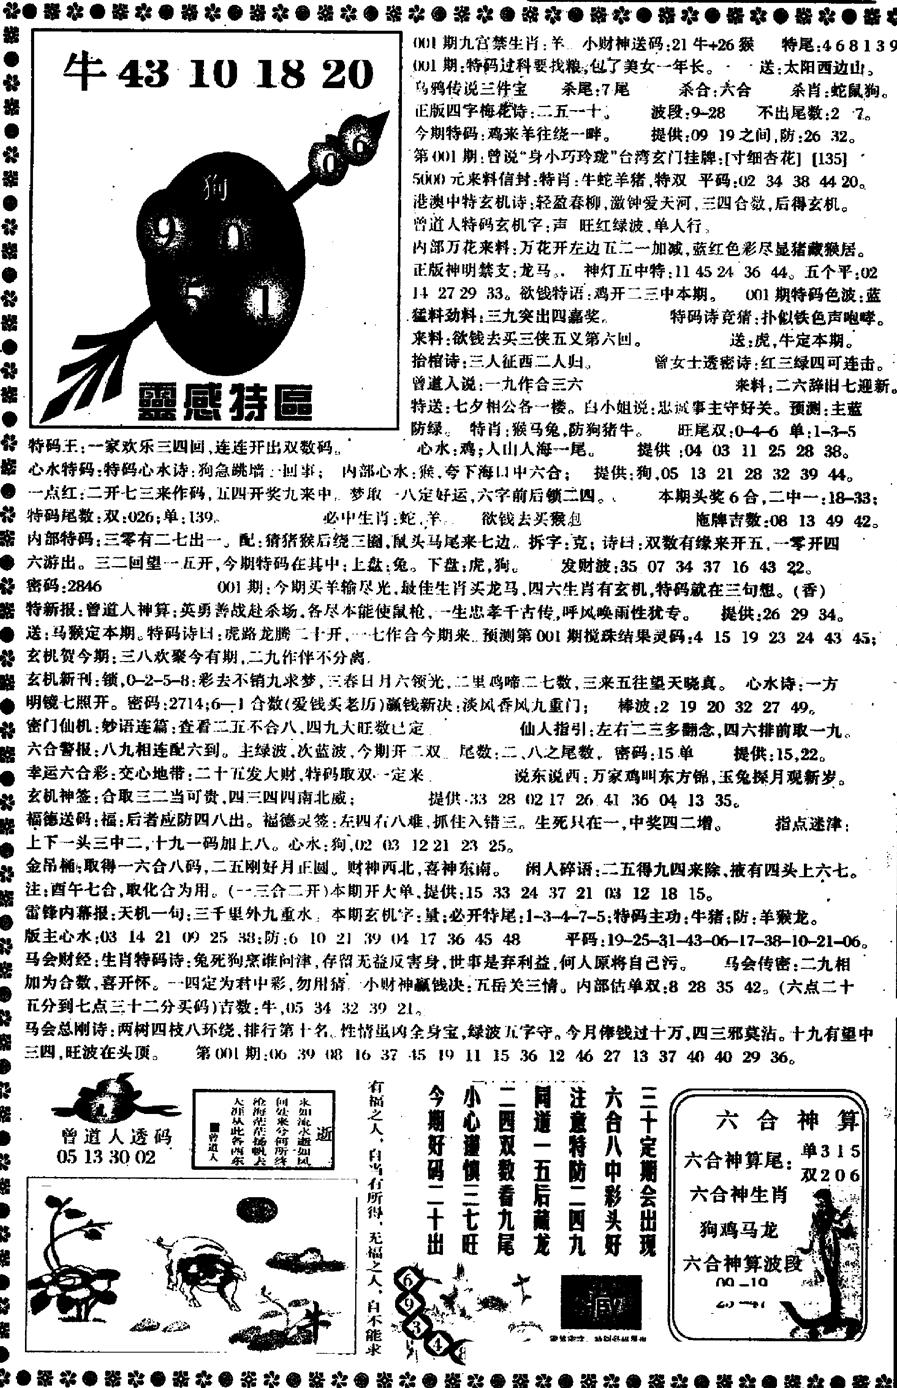 牛 43 10 18 20
狗
0 6
9 0
5 1
靈感特區
001期九宫禁生肖:羊 小财神送码:21牛+26猴 特尾:468139
001期:特码过科要找粮,包了美女一年长。 送:太阳西边山。
乌鸦传说三件宝 杀尾:7尾 杀合:六合 杀肖:蛇鼠狗。
正版四字梅花诗:二五一十。 波段:9-28 不出尾数:2 7。
今期特码:鸡来羊往绕一畔。 提供:09 19之间,防:26 32。
第001期:曾说“身小巧玲珑”台湾玄门挂牌:[寸细杏花] [135]
5000元来料信封:特肖:牛蛇羊猪,特双 平码:02 34 38 44 20。
港澳中特玄机诗:轻盈春柳,激钟爱天河,三四合数,后得玄机。
曾道人特码玄机字:声 旺红绿波,单人行。
内部万花来料:万花开左边五二一加减,蓝红色彩尽显猪藏猴居。
正版神明禁支:龙马。 神灯五中特:11 45 24 36 44。五个平:02
14 27 29 33。欲钱特语:鸡开二三中本期。 001期特码色波:蓝
猛料劲料:三九突出四嘉奖。 特码诗竞猜:扑似铁色声咆哮。
来料:欲钱去买三侠五义第六回。 送:虎,牛定本期。
抬棺诗:三人征西二人归。 曾女士透密诗:红三绿四可连击。
曾道人说:一九作合三六 来料:二六辞旧七迎新。
特送:七夕相公各一楼。白小姐说:忠诚事主守好关。预测:主蓝
防绿。 特肖:猴马兔,防狗猪牛。 旺尾双:0-4-6 单:1-3-5
特码王:一家欢乐三四回,连连开出双数码。 心水:鸡;人山人海一尾。 提供:04 03 11 25 28 38。
心水特码:特码心水诗:狗急跳墙二回事; 内部心水:猴,夸下海口中六合; 提供:狗,05 13 21 28 32 39 44。
一点红:二开七三来作码,五四开奖九来中。梦取一八定好运,六字前后锁二四。 本期头奖6合,二中一:18-33;
特码尾数:双:026;单:139。 必中生肖:蛇,羊。 欲钱去买猴 拖牌吉数:08 13 49 42。
内部特码:三零有二七出一。配:猪猪猴后绕三圈,鼠头马尾来七边。拆字:克;诗曰:双数有缘来开五,一零开四
六游出。三二回望一五开,今期特码在其中:上盘:兔。下盘:虎,狗。 发财波:35 07 34 37 16 43 22。
密码:2846 001期:今期买羊输尽光,最佳生肖买龙马,四六生肖有玄机,特码就在三句想。(香)
特新报:曾道人神算:英勇善战赴杀场,各尽本能使鼠枪,一生忠孝千古传,呼风唤雨性犹专。 提供:26 29 34。
送:马猴定本期。特码诗曰:虎路龙腾二十开,一七作合今期来。预测第001期搅珠结果灵码:4 15 19 23 24 43 45;
玄机贺今期:三八欢聚今有期,二九作伴不分离。
玄机新刊:锁,0-2-5-8:彩去不销九求梦,三春日月六领光,二里鸡啼二七数,三来五往望天晓真。 心水诗:一方
明镜七照开。密码:2714;6—1合数(爱钱买老历)赢钱新决:淡风香风九重门; 棒波:2 19 20 32 27 49。
密门仙机:妙语连篇:查看二五不合八,四九大旺数已定 仙人指引:左右二三多翻念,四六排前取一九。
六合警报:八九相连配六到。主绿波,次蓝波,今期开二双。尾数:二、八之尾数。密码:15单 提供:15,22。
幸运六合彩:交心地带:二十五发大财,特码取双一定来 说东说西:万家鸡叫东方锦,玉兔探月观新岁。
玄机神签:合取三二当可贵,四三四四南北威; 提供:33 28 02 17 26 41 36 04 13 35。
福德送码:福:后者应防四八出。福德灵签:左四右八难,抓住入错三。生死只在一,中奖四二增。 指点迷津:
上下一头三中二,十九一码加上八。心水:狗,02 03 12 21 23 25。
金吊桶:取得一六合八码,二五刚好月正圆。财神西北,喜神东南。 闲人碎语:二五得九四来除,掖有四头上六七。
注:酉午七合,取化合为用。(一三合二开)本期开大单,提供:15 33 24 37 21 03 12 18 15。
雷锋内幕报:天机一句:三千里外九重水。本期玄机字:量;必开特尾:1-3-4-7-5;特码主功:牛猪;防:羊猴龙。
版主心水:03 14 21 09 25 38;防:6 10 21 39 04 17 36 45 48 平码:19-25-31-43-06-17-38-10-21-06。
马会财经:生肖特码诗:兔死狗烹谁问津,存留无益反害身,世事是弃利益,何人原将自己污。 马会传密:二九相
加为合数,喜开怀。一四定为君中彩,勿用猪。小财神赢钱决:五岳关三情。内部估单双:8 28 35 42。(六点二十
五分到七点三十二分买码)吉数:牛,05 34 32 39 21。
马会总刚诗:两树四枝八环绕,排行第十名。性情虽凶全身宝,绿波五字守。今月俸钱过十万,四三邪莫沾。十九有望中
三四,旺波在头顶。 第001期:06 39 08 16 37 45 19 11 15 36 12 46 27 13 37 40 40 29 36。
曾道人透码
05 13 30 02
逝
永如流水逝如风
何处来兮何所终
沧海茫茫扬帆去
天涯从此各西东
曾道人
牛
有福之人,自当有所得,无福之人,自不能求
三十定期会出现
六合八中彩头好
注意特防二四九
同道一五后藏龙
二四双数看九尾
小心谨慎三七旺
今期好码二十出
6
9
3
4
六合神算
六合神算尾:单315
双206
六合神生肖
狗鸡马龙
六合神算波段
09-19